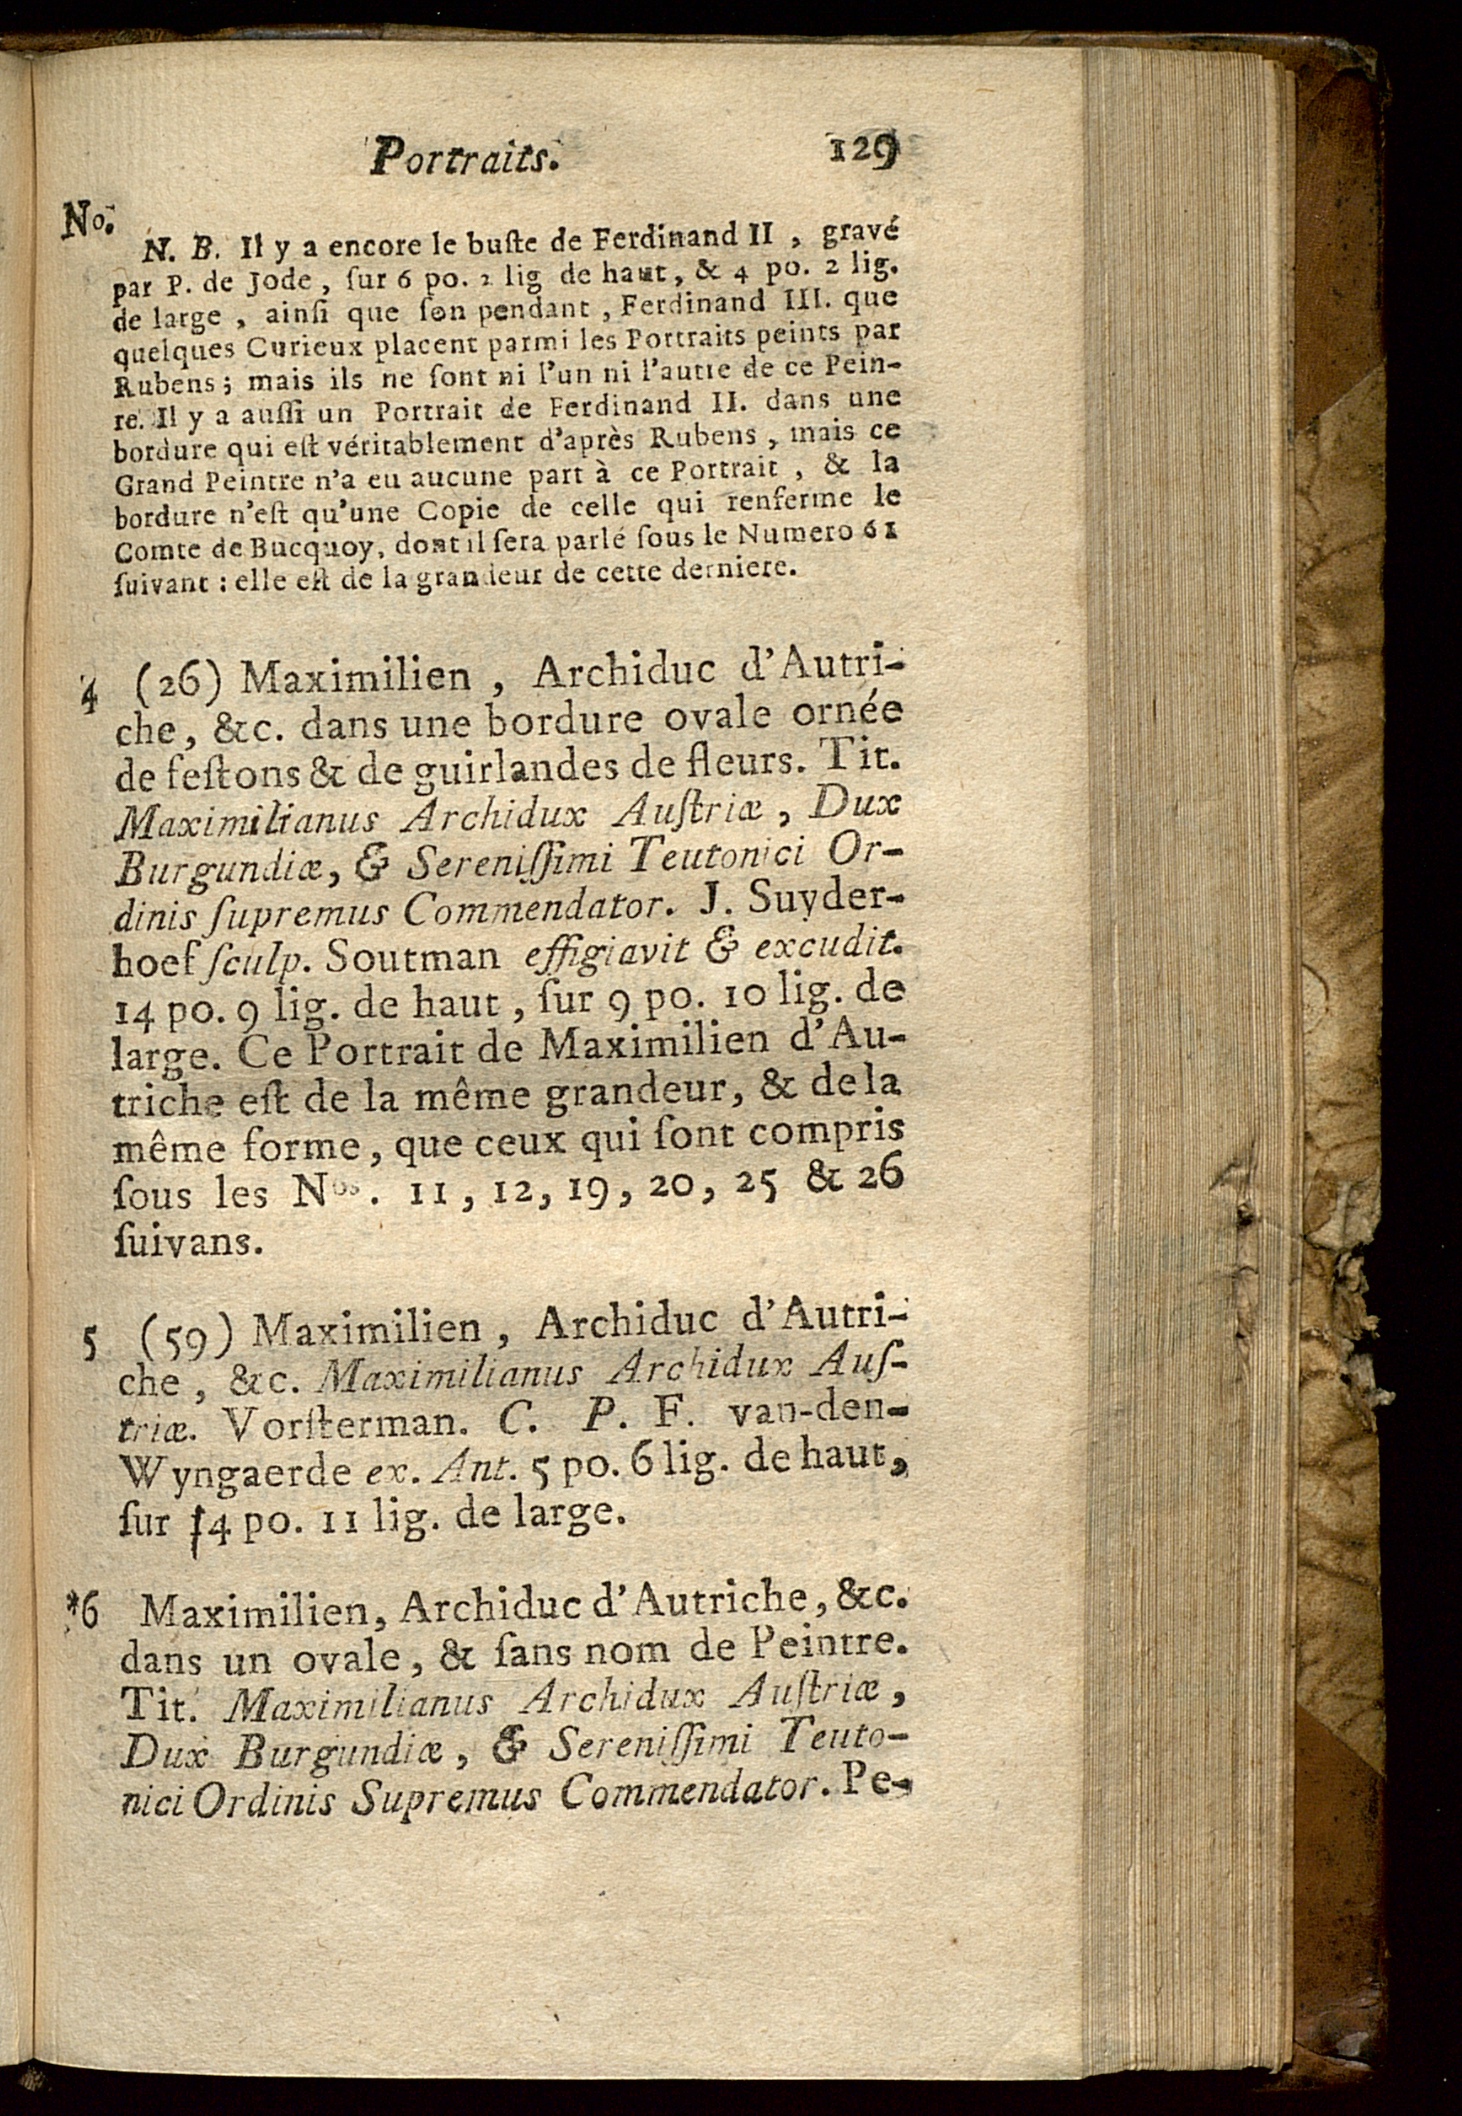 Portraits. 129
No.
N. B. Il y a encore le buſte de Ferdinand II , gravé
par P. de Jode , ſur 6 po. 2 lig de haut, & 4 po. 2 lig.
de large , ainſi que ſon pendant , Ferdinand III. que
quelques Curieux placent parmi les Portraits peints par
Rubens ; mais ils ne ſont ni l'un ni l'autre de ce Pein-
re. Il y a auſſi un Portrait de Ferdinand II. dans une
bordure qui eſt véritablement d'après Rubens , mais ce
Grand Peintre n'a eu aucune part à ce Portrait , & la
bordure n'eſt qu'une Copie de celle qui renferme le
Comte de Bucquoy, dont il ſera parlé ſous le Numero 61
ſuivant : elle eſt de la grandeur de cette derniere.
4 (26) Maximilien , Archiduc d'Autri-
che, &c. dans une bordure ovale ornée
de feſtons & de guirlandes de fleurs. Tit.
Maximilianus Archidux Auſtriæ , Dux
Burgundiæ, & Sereniſſimi Teutonici Or-
dinis ſupremus Commendator. J. Suyder-
hoef ſculp. Soutman effigiavit & excudit.
14 po. 9 lig. de haut , ſur 9 po. 10 lig. de
large. Ce Portrait de Maximilien d'Au-
triche eſt de la même grandeur, & de la
même forme , que ceux qui ſont compris
ſous les Nos. 11 , 12, 19, 20, 25 & 26
ſuivans.
5 (59) Maximilien , Archiduc d'Autri-
che , &c. Maximilianus Archidux Auſ-
triæ. Vorſterman. C. P. F. van-den-
Wyngaerde ex. Ant. 5 po. 6 lig. de haut,
ſur 4 po. 11 lig. de large.
*6 Maximilien, Archiduc d'Autriche, &c.
dans un ovale, & ſans nom de Peintre.
Tit. Maximilianus Archidux Auſtriæ ,
Dux Burgundiæ , & Sereniſſimi Teuto-
nici Ordinis Supremus Commendator. Pe-